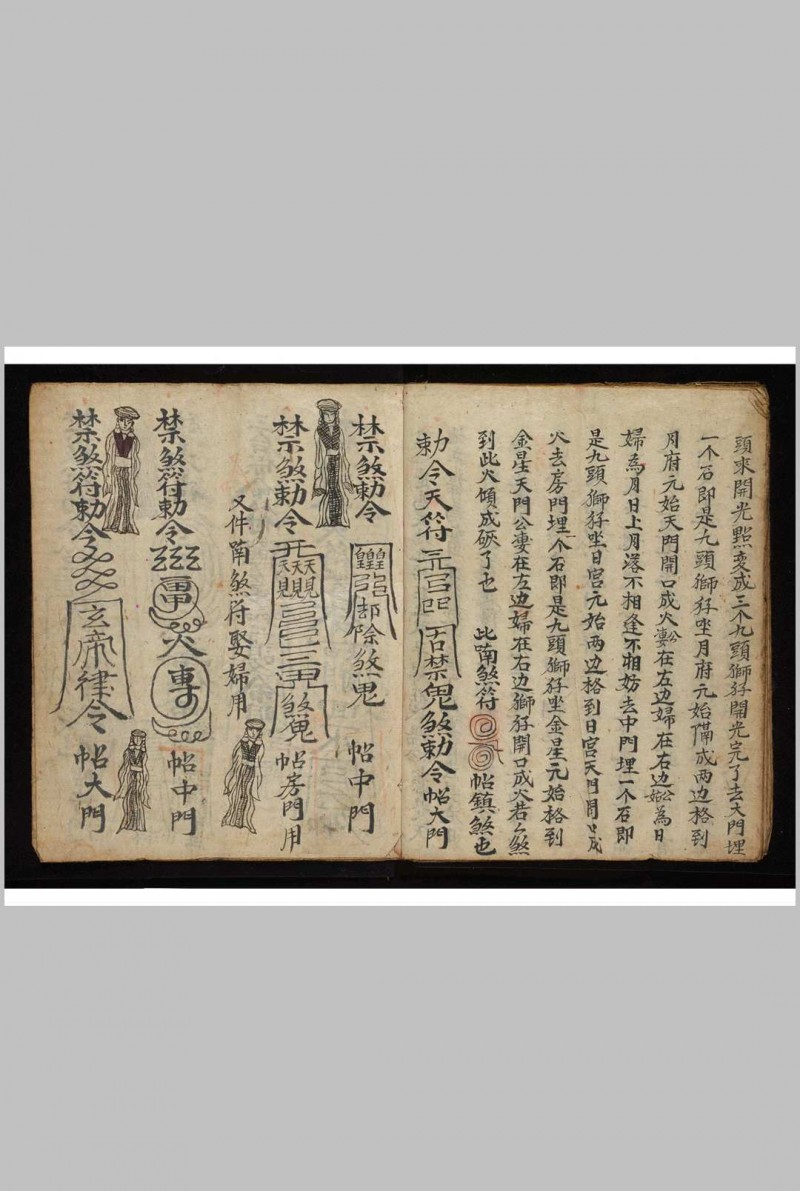 頭來開光點変成三个九頭獅仔開光完了去天門埋
一个石即是九頭獅仔坐月府元始備成两边格到
月府元始天門開口成火在左边婦在右边為日
婦為月日上月落不相逢不相妨去中門埋一个石即
是九頭獅仔坐日宮元始两边格到日宮天門開口成
火去房門埋一个石即是九頭獅仔坐金星元始格到
金星天門公妻在左边婦在右边獅仔開口成火若么煞
到此火傾成砾了也 此喃煞符 帖鎮煞也
勅令天符 禁鬼煞勅令帖大門
禁煞勅令 却除煞鬼 帖中門
禁煞勅令 煞鬼 帖房門用
又件喃煞符娶婦用
禁煞符勅令 火 專 帖中門
禁煞符勅令 玄帝律令 帖大門